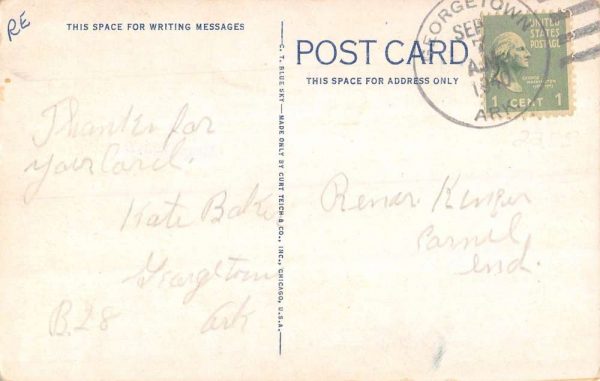 RE
THIS SPACE FOR WRITING MESSAGES
POST CARD
THIS SPACE FOR ADDRESS ONLY
GEORGETOWN
SEP
7
AM
ARK
UNITED
STATES
POSTAGE
GEORGE
WASHINGTON
1 CENT 1
C. T. BLUE SKY — MADE ONLY BY CURT TEICH & CO., INC., CHICAGO, U.S.A.
Thanks for
your Card.
Kate Bake
Georgetown
B28 Ark
Ind.